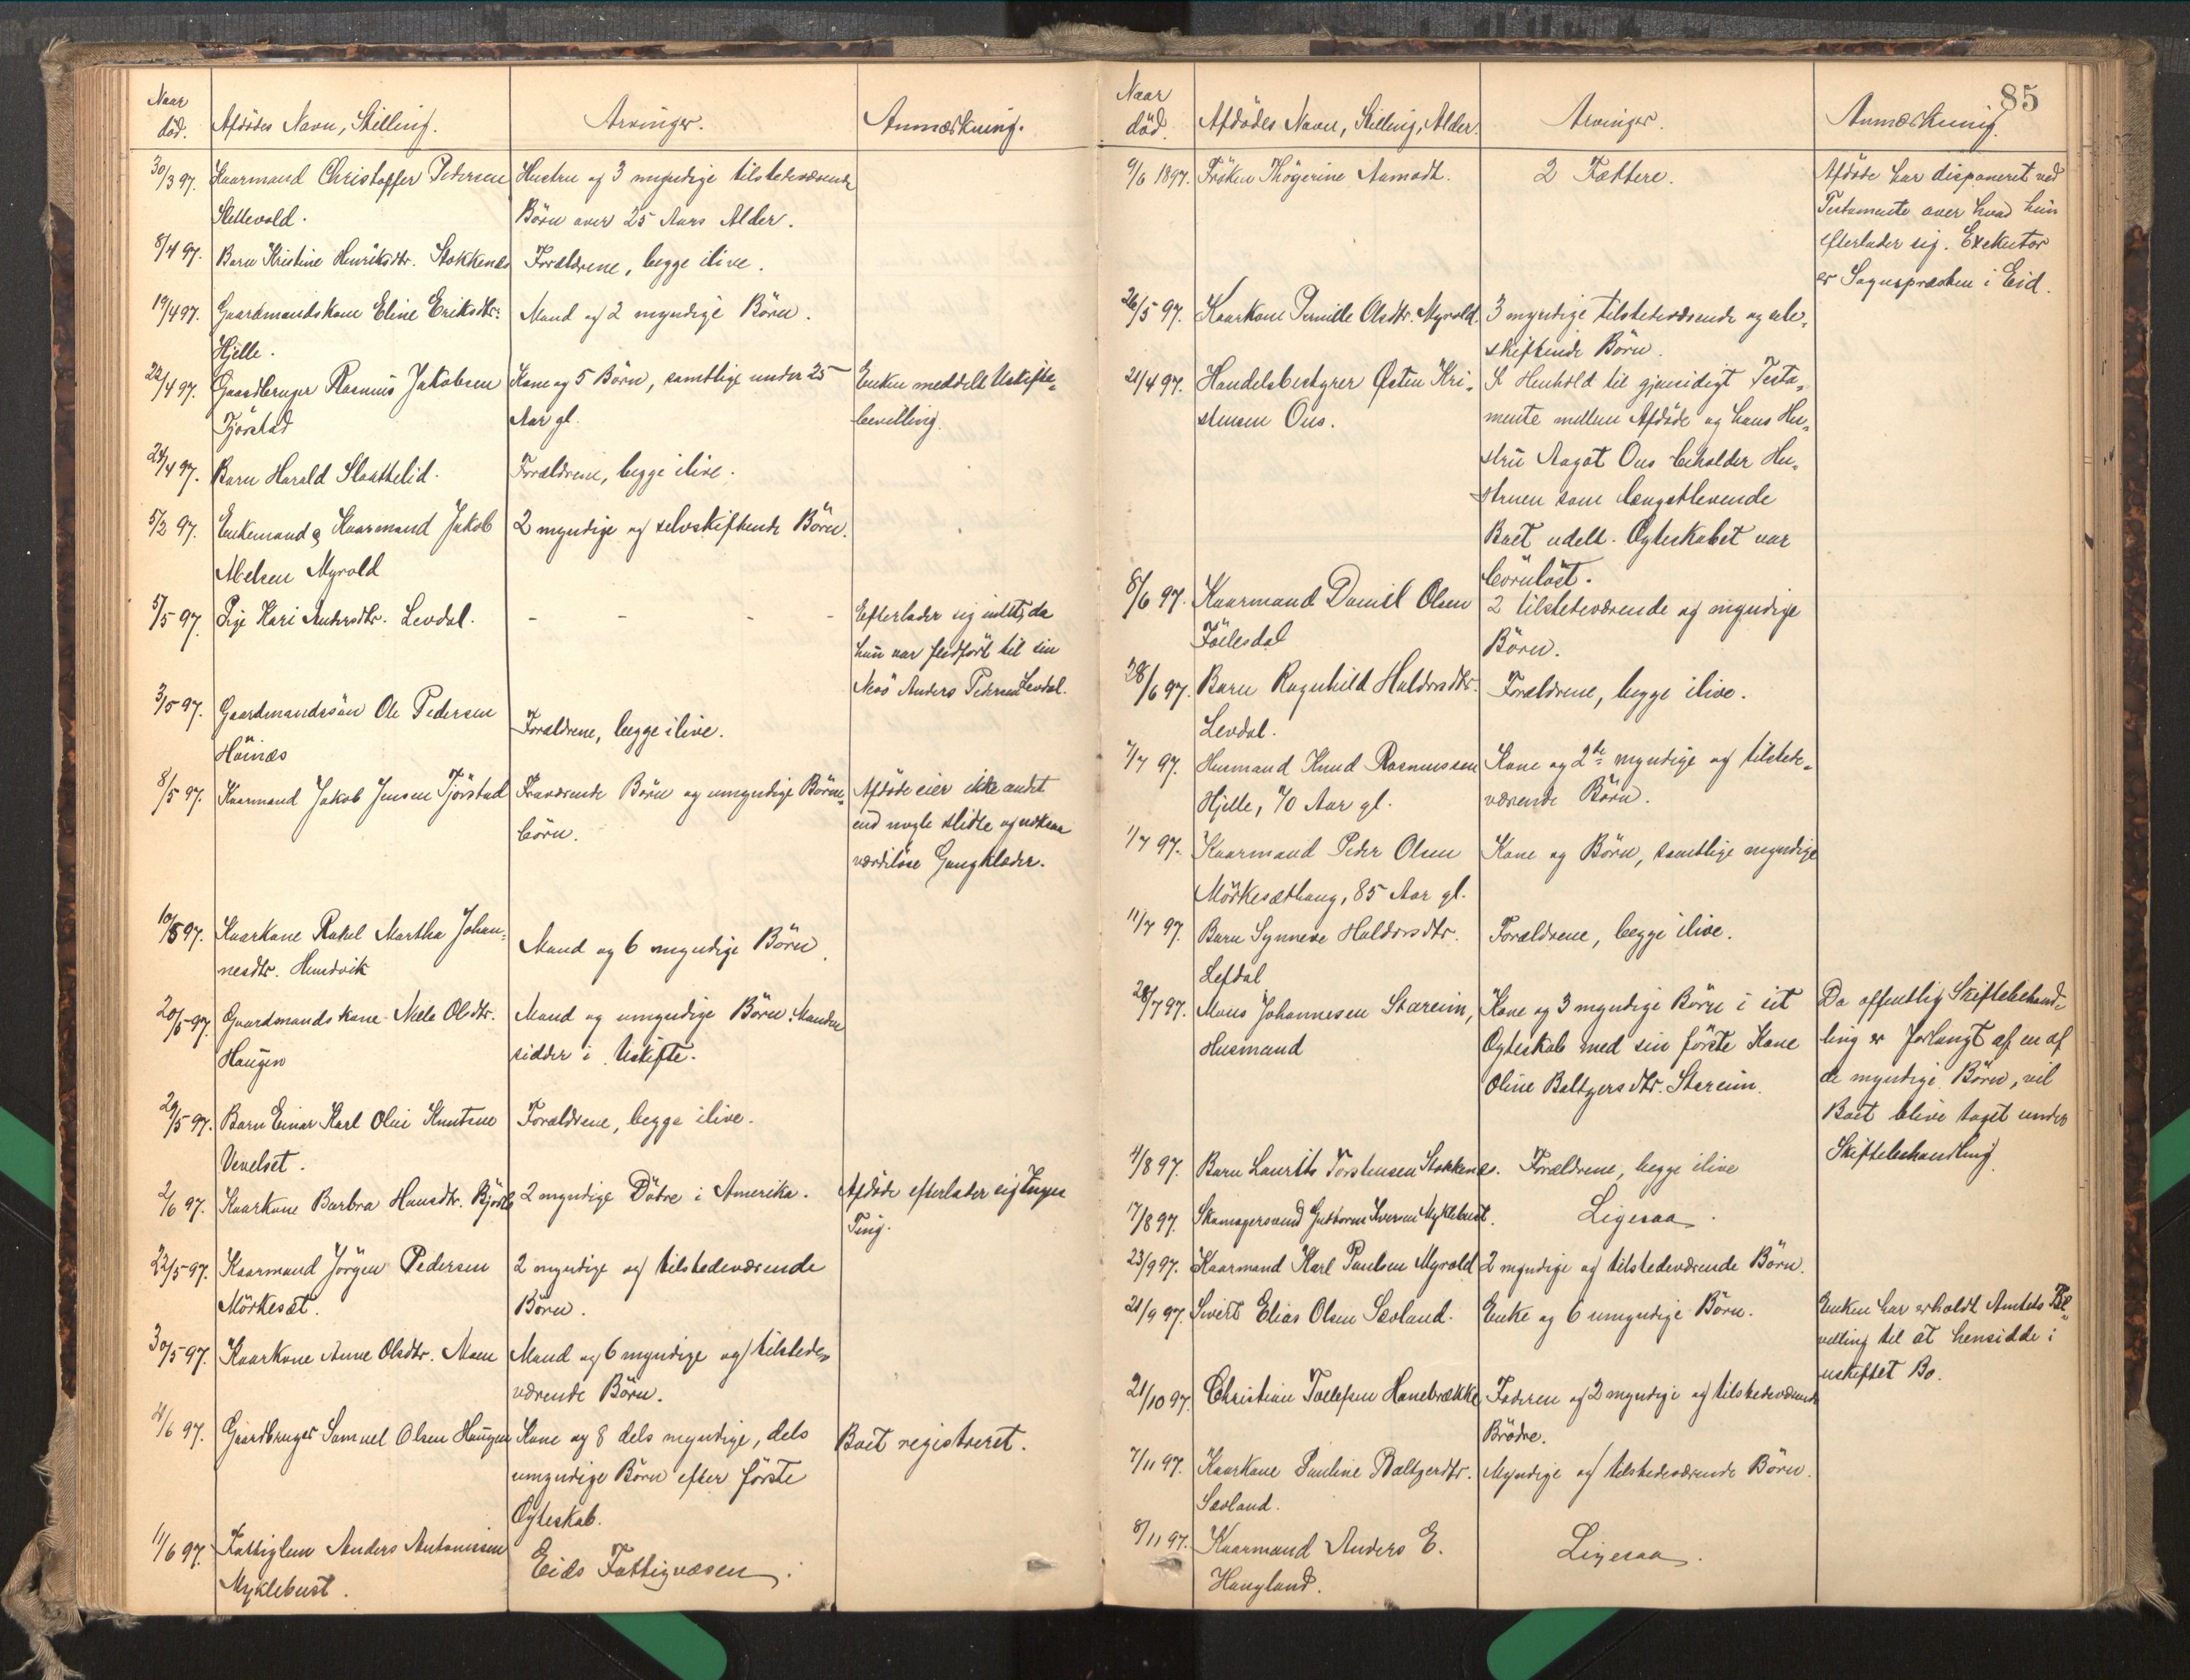 Naar
död.
Afdödes Navn, Stilling.
Arvinger.
Anmærkning.
30/3 97. Kaarmand Christoffer Pedersen
Stettevold.
Hustru og 3 myndige tilstedeværende
Börn over 25 Aars Alder.
8/4 97. Barn Kristine Henriksdtr. Stokkenæs
Forældrene, begge ilive.
19/4 97. Gaardmandskone Eline Eriksdtr.
Hjelle.
Mand og 2 myndige Börn.
22/4 97. Gaardbruger Rasmus Jakobsen
Tjörstad
Kone og 5 Börn, samtlige under 25
Aar gl.
Enken meddelt Uskifte-
bevilling.
24/4 97. Barn Harald Slaattelid.
Forældrene, begge ilive.
5/2 97. Enkemand & Kaarmand Jakob
Abelsen Myrold
2 myndige og selvskiftende Börn.
5/5 97. Pige Kari Andersdtr. Levdal.
- - - -
Efterlader sig intet, da
hun var fledfört til sin
Nevö Anders Pedersen Levdal.
3/5 97. Gaardmandssön Ole Pedersen
Höinæs
Forældrene, begge ilive.
8/5 97. Kaarmand Jakob Jensen Tjörstad
Fraværende Börn og umyndige Börne-
börn.
Afdöde eier ikke andet
end nogle slidte og næsten
værdilöse Gangklæder.
10/5 97. Kaarkone Rakel Martha Johan-
nesdtr. Hundvik
Mand og 6 myndige Börn.
20/5 97. Gaardmandskone Nille Olsdtr.
Haugen
Mand og umyndige Börn. Manden
sidder i Uskifte.
29/5 97. Barn Einar Karl Olai Knutsen
Venelset.
Forældrene, begge ilive.
2/6 97. Kaarkone Barbra Hansdtr. Bjørlo
2 myndige Døtre i Amerika.
Afdöde efterlader sig Ingen
Ting.
22/5 97. Kaarmand Jörgen Pedersen
Mörkesæt.
2 myndige og tilstedeværende
Börn.
30/5 97. Kaarkone Anne Olsdtr. Moen
Mand og 6 myndige og tilstede-
værende Börn.
4/6 97. Gaardbruger Samuel Olsen Haugen
Kone og 8 dels myndige, dels
umyndige Börn efter förste
Ægteskab.
Boet registreret.
11/6 97. Fattiglem Anders Antonissen
Myklebust.
Eids Fattigvæsen.
85
Naar
död.
Afdödes Navn, Stilling, Alder.
Arvinger.
Anmærkning.
9/6 1897. Fröken Thögerine Aamodt.
2 Fættere.
Afdöde har disponeret ved
Testamente over hvad hun
efterlader sig. Exekutor
er Sognepræsten i Eid.
26/5 97. Kaarkone Pernille Olsdtr. Myrold.
3 myndige tilstedeværende og selv-
skiftende Börn.
21/4 97. Handelsbestyrer Østen Kri-
stensen Ous.
I Henhold til gjensidigt Testa-
mente mellem Afdöde og hans Hu-
stru Aagot Ous beholder Hu-
struen som længstlevende
Boet udelt. Ægteskabet var
börnlöst.
8/6 97. Kaarmand Daniel Olsen
Föilesdal
2 tilstedeværende og myndige
Börn.
28/6 97. Barn Ragnhild Haldorsdtr.
Levdal.
Forældrene, begge ilive.
7/7 97. Husmand Knud Rasmussen
Hjelle, 70 Aar gl.
Kone og 2de myndige og tilstede-
værende Börn.
1/7 97. Kaarmand Peder Olsen
Mörkesæthaug, 85 Aar gl.
Kone og Börn, samtlige myndige
11/7 97. Barn Synneve Haldorsdtr.
Lefdal
Forældrene, begge ilive.
28/7 97. Mons Johannesen Stareim,
Husmand
Kone og 3 myndige Börn i sit
Ægteskab med sin förste Kone
Oline Baltzersdtr. Stareim.
Da offentlig Skiftebehand-
ling er forlangt af en af
de myndige Börn, vil
Boet blive taget under
Skiftebehandling.
4/8 97. Barn Laurits Torstensen Stokkenæs.
Forældrene, begge ilive
17/8 97. Skomagersvend Guttorm Iversen Myklebust.
Ligesaa.
23/9 97. Kaarmand Karl Paulsen Myrold
2 myndige og tilstedeværende Börn.
21/9 97. Sivert Elias Olsen Sævland.
Enke og 6 umyndige Börn.
Enken har erholdt Amtets Be-
villing til at hensidde i
uskiftet Bo.
21/10 97. Christian Tollefsen Hanebrække
Faderen og 2 myndige og tilstedeværende
Brödre.
7/11 97. Kaarkone Pauline Baltzerdtr.
Sævland.
Myndige og tilstedeværende Börn.
8/11 97. Kaarmand Anders E.
Haugland.
Ligesaa.